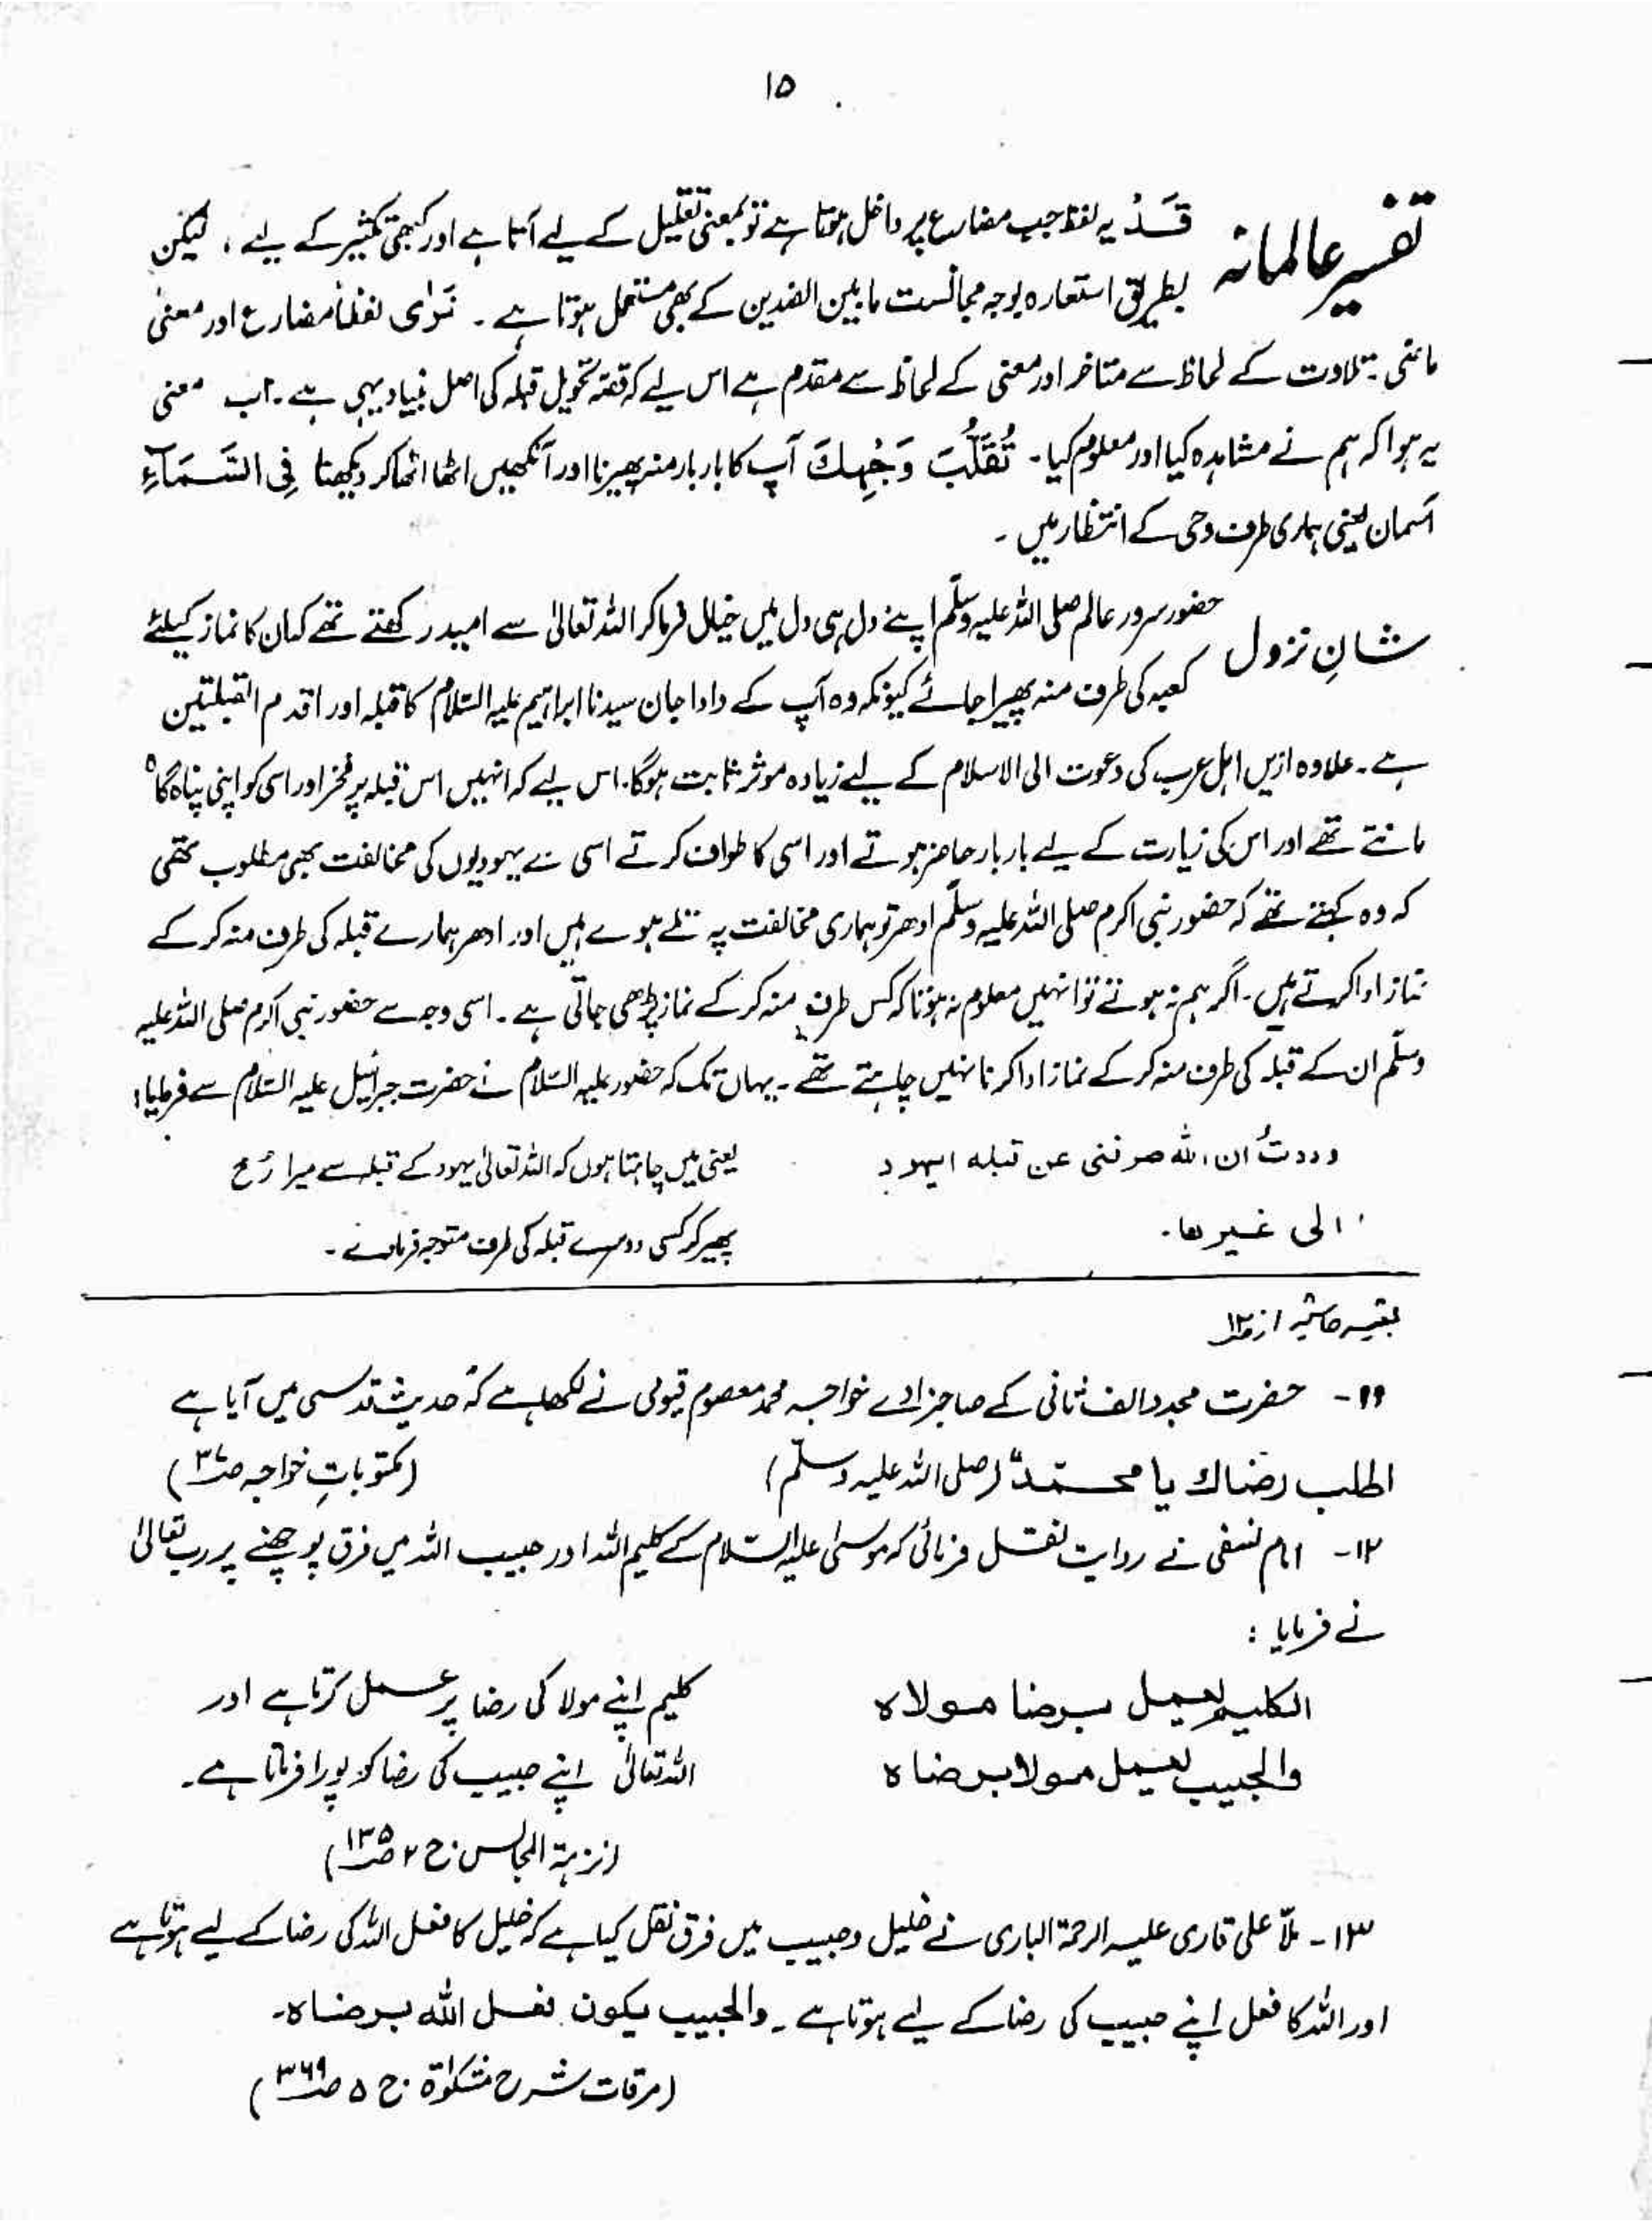 ۱۵
تفسیر عالمانہ قَدْ یہ لفظ جب مضارع پر داخل ہوتا ہے تو بمعنی تقلیل کے لیے آتا ہے اور کبھی تکثیر کے لیے ، لیکن
بطریق استعارہ بوجہ مجالست مابین الضدین کے بھی مستعمل ہوتا ہے ۔ نَرٰی لفظاً مضارع اور معنیٰ
ماضی ۔ تلاوت کے لحاظ سے متاخر اور معنی کے لحاظ سے مقدم ہے اس لیے کہ قصہ تحویل قبلہ کی اصل بنیاد یہی ہے ۔ اب معنی
یہ ہوا کہ ہم نے مشاہدہ کیا اور معلوم کیا ۔ تُقَلُّبَ وَجْهِكَ آپ کا بار بار منہ پھیرنا اور آنکھیں اٹھا اٹھا کر دیکھنا فِی السَّمَآءِ
آسمان یعنی ہماری طرف وحی کے انتظار میں ۔
شانِ نزول حضور سرور عالم صلی اللہ علیہ وسلّم اپنے دل ہی دل میں خیال فرما کر اللہ تعالیٰ سے امید رکھتے تھے کہ ان کا نماز کیلئے
کعبہ کی طرف منہ پھیرا جائے کیونکہ وہ آپ کے دادا جان سیدنا ابراہیم علیہ السّلام کا قبلہ اور اقدم القبلتین
ہے ۔ علاوہ ازیں اہل عرب کی دعوت الی الاسلام کے لیے زیادہ موثر ثابت ہوگا ۔ اس لیے کہ انہیں اس قبلہ پر فخر اور اسی کو اپنی پناہ گاہ
مانتے تھے اور اس کی زیارت کے لیے بار بار حاضر ہوتے اور اسی کا طواف کرتے اسی سے یہودیوں کی مخالفت بھی مطلوب تھی
کہ وہ کہتے تھے کہ حضور نبی اکرم صلی اللہ علیہ وسلّم ادھر تو ہماری مخالفت پہ تلے ہوے ہیں اور ادھر ہمارے قبلہ کی طرف منہ کر کے
نماز ادا کرتے ہیں ۔ اگر ہم نہ ہوتے تو انہیں معلوم نہ ہوتا کہ کس طرف منہ کر کے نماز پڑھی جاتی ہے ۔ اسی وجہ سے حضور نبی اکرم صلی اللہ علیہ
وسلّم ان کے قبلہ کی طرف منہ کر کے نماز ادا کرنا نہیں چاہتے تھے ۔ یہاں تک کہ حضور علیہ السّلام نے حضرت جبرائیل علیہ السّلام سے فرمایا :
وددتُ ان اللہ صرفنی عن قبلہ الیہود یعنی میں چاہتا ہوں کہ اللہ تعالیٰ یہود کے قبلہ سے میرا رُخ
الی غیرھا ۔ پھیر کر کسی دوسرے قبلہ کی طرف متوجہ فرمادے ۔
بقیہ حاشیہ از ص۱۳
۱۱ - حضرت مجدد الف ثانی کے صاحبزادے خواجہ محمد معصوم قیومی نے لکھا ہے کہ "حدیث قدسی میں آیا ہے
اطلب رضاك یا محمد" (صلی اللہ علیہ وسلّم) (مکتوباتِ خواجہ ص۳۷)
۱۲ - امام نسفی نے روایت نقل فرمائی کہ موسیٰ علیہ السّلام کے کلیم اللہ اور حبیب اللہ میں فرق پوچھنے پر رب تعالیٰ
نے فرمایا :
الکلیم یعمل برضا مولاہ کلیم اپنے مولا کی رضا پر عمل کرتا ہے اور
والحبیب یعمل مولا برضاہ اللہ تعالیٰ اپنے حبیب کی رضا کو پورا فرماتا ہے ۔
(نزہۃ المجالس ج ۲ ص۱۳۵)
۱۳ - ملّا علی قاری علیہ الرحمۃ الباری نے خلیل و حبیب میں فرق نقل کیا ہے کہ خلیل کا فعل اللہ کی رضا کے لیے ہوتا ہے
اور اللہ کا فعل اپنے حبیب کی رضا کے لیے ہوتا ہے ۔ والحبیب یکون فعل اللہ برضاہ ۔
(مرقات شرح مشکوٰۃ ج ۵ ص۳۶۹)